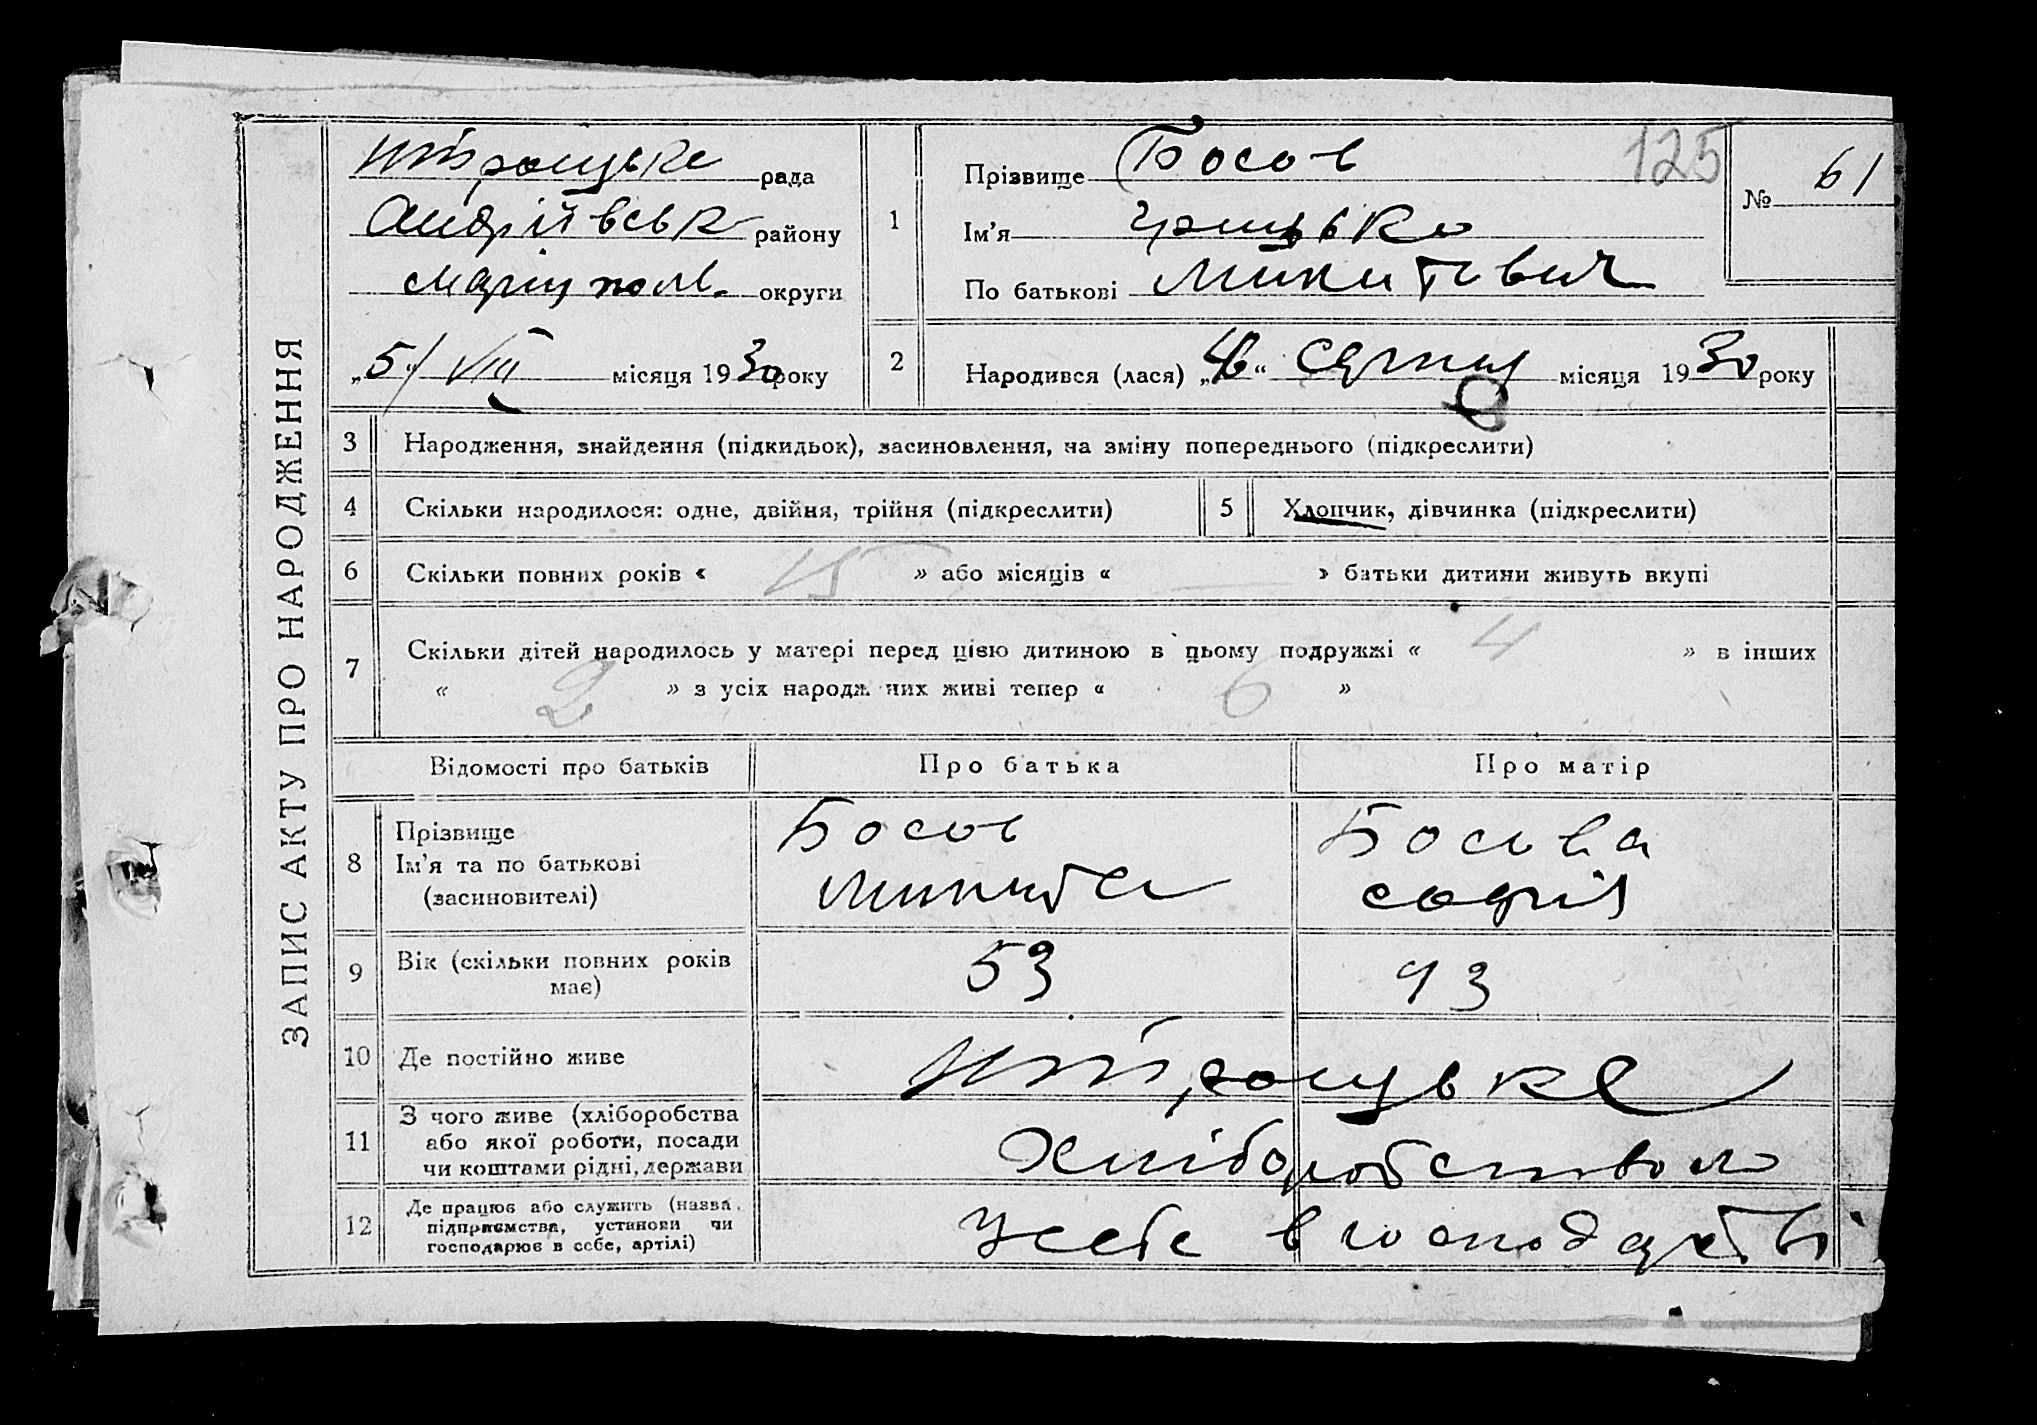 ЗАПИС АКТУ ПРО НАРОДЖЕННЯ
125
№ 61
рада
Андрійвськ району
Маріупол. округи
„5“ VIII місяця 1930 року
1
Прізвище Босов
Ім’я Грицько
По батькові Микитович
2
Народився (лася) „ “ серпня місяця 1930 року
3 Народження, знайдення (підкидьок), засиновлення, на зміну попереднього (підкреслити)
4 Скільки народилося: одне, двійня, трійня (підкреслити)
5 Хлопчик, дівчинка (підкреслити)
6 Скільки повних років « 15 » або місяців « — » батьки дитини живуть вкупі
7 Скільки дітей народилось у матері перед цією дитиною в цьому подружжі « 4 » в інших
« 2 » з усіх народж них живі тепер « 6 »
Відомості про батьків Про батька Про матір
8 Прізвище
Ім’я та по батькові
(засиновителі)
Босов
Микита
Босова
Софія
9 Вік (скільки повних років
має)
53
43
10 Де постійно живе
11 З чого живе (хліборобства
або якої роботи, посади
чи коштами рідні, держави
Хліборобством
12 Де працює або служить (назва
підприємства, установи чи
господарює в себе, артілі)
У себе в господарстві